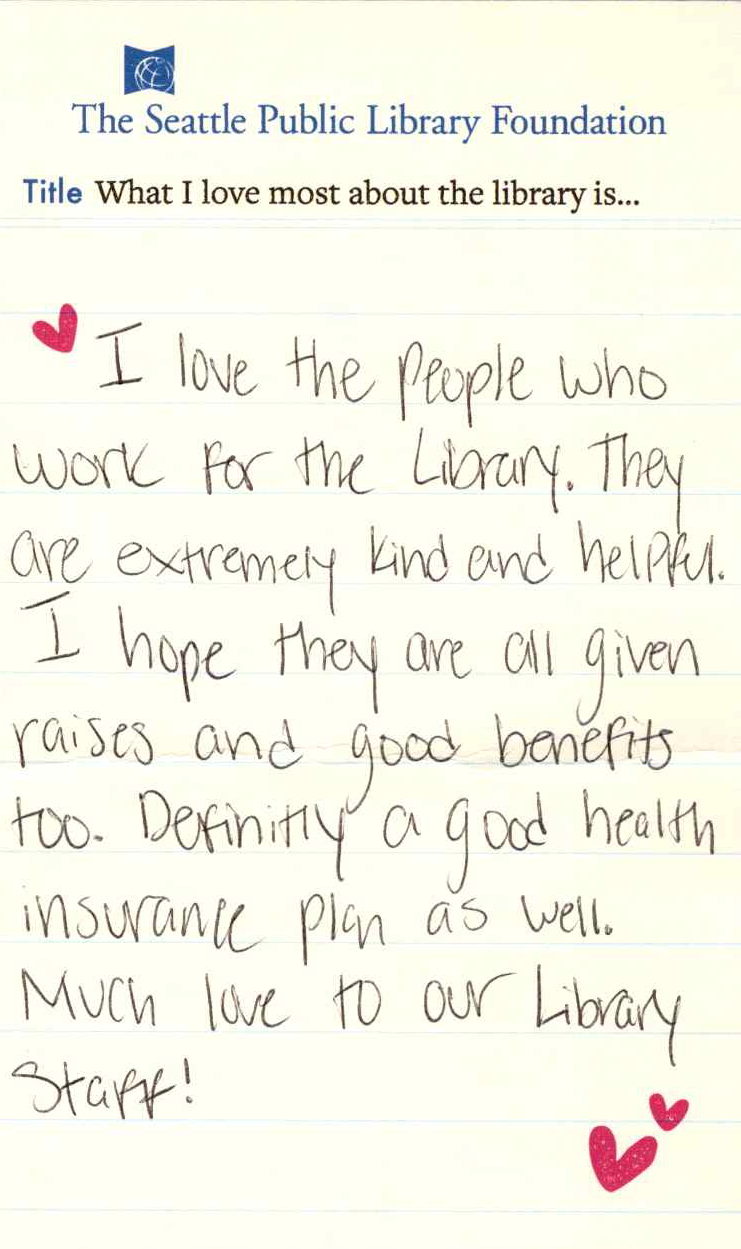 The Seattle Public Library Foundation
Title What I love most about the library is...
I love the people who
work for the Library. They
are extremely kind and helpful.
I hope they are all given
raises and good benefits
too. Definitly a good health
insurance plan as well.
Much love to our Library
Staff!